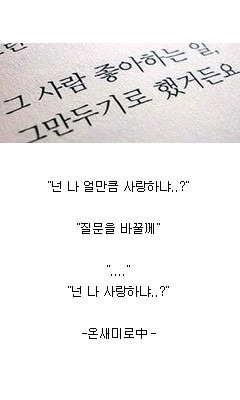 그 사람 좋아하는 일,
그만두기로 했거든요
"넌 나 얼만큼 사랑하냐..?"
"질문을 바꿀께"
"...."
"넌 나 사랑하냐..?"
-온새미로中-